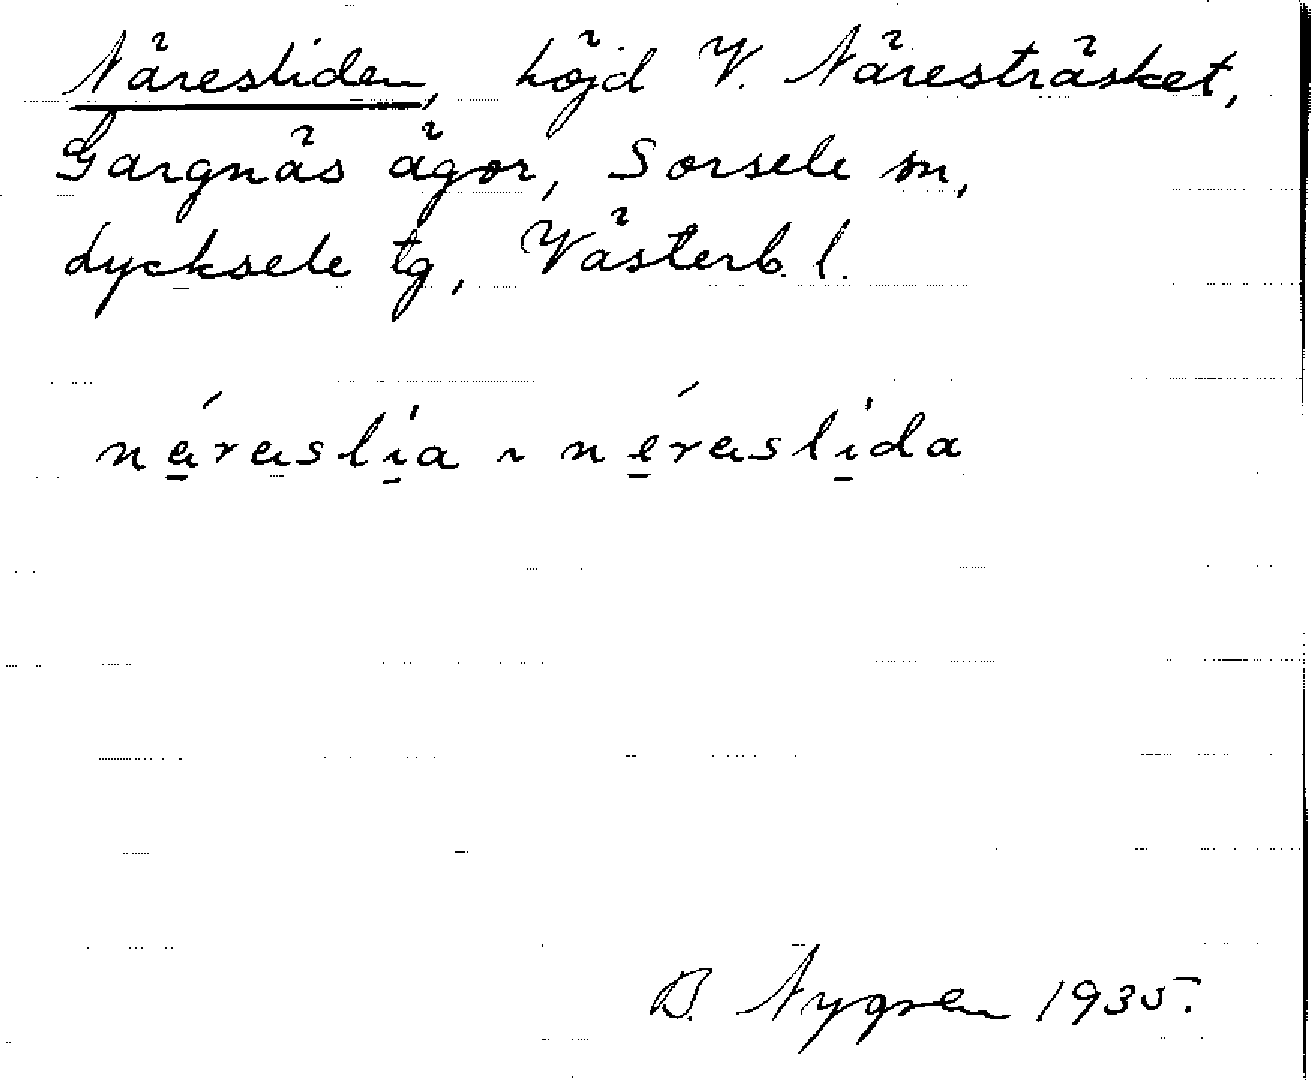 Näresliden, höjd V. Näresträsket,
Gargnäs ägor, Sorsele sn,
Lycksele tg, Västerb. l.
néreslia ~ néreslida
B. Nygren 1935.